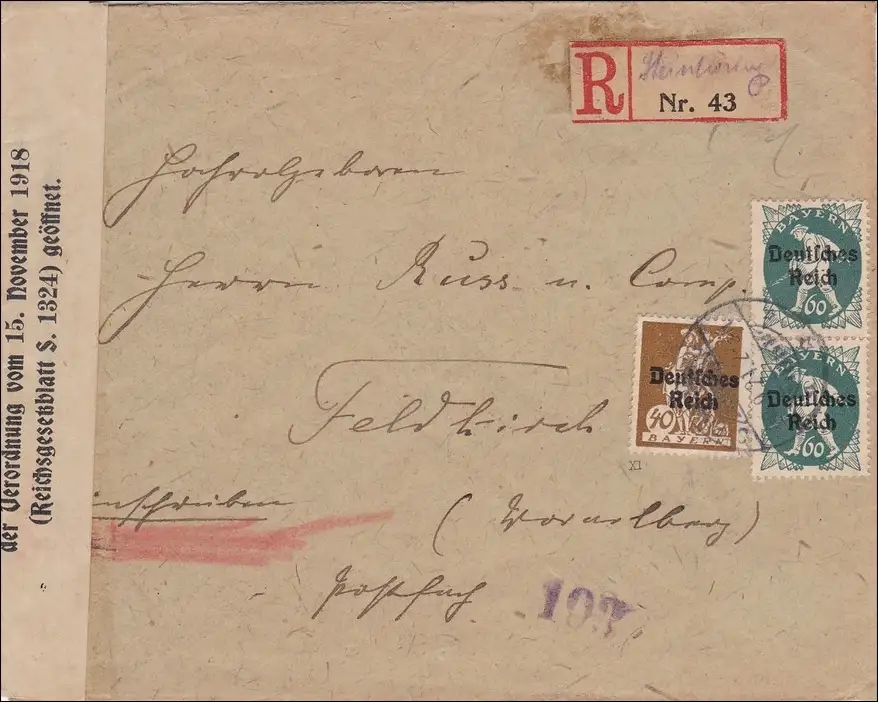 der Verordnung vom 15. November 1918
(Reichsgesetzblatt S. 1324) geöffnet.
R
Steinhöring
Nr. 43
Hochwolgeboren
Herrn Russ u. Comp.
Feldkirch
inschreiben
(Vorarlberg)
Postfach
103
BAYERN
Deutsches
Reich
60
BAYERN
Deutsches
Reich
60
Deutsches
Reich
40
BAYERN
XI